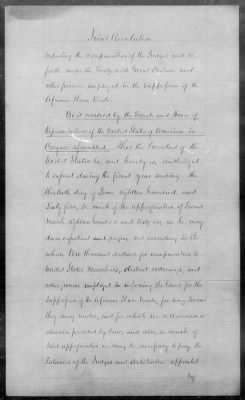 Joint Resolution
respecting the compensation of the Judges and so
forth under the Treaty with Great Britain and
other persons employed in the suppression of the
African Slave Trade.
Be it resolved by the Senate and House of
Representatives of the United States of America in
Congress assembled. That the President of the
United States be, and hereby is authorized
to expend during the fiscal year ending the
thirtieth day of June eighteen hundred and
Sixty five, so much of the appropriation of
March eighteen hundred and Sixty as he may
deem expedient and proper, not exceeding in the
whole ten thousand dollars for compensation to
United States Marshals, district attorneys, and
other persons employed in enforcing the laws for the
suppression of the African Slave Trade, for any services
they may render, and for which no allowance is
otherwise provided by law; and also, so much of
said appropriation as may be necessary to pay the
Salaries of the Judges and Arbitrators appointed
by